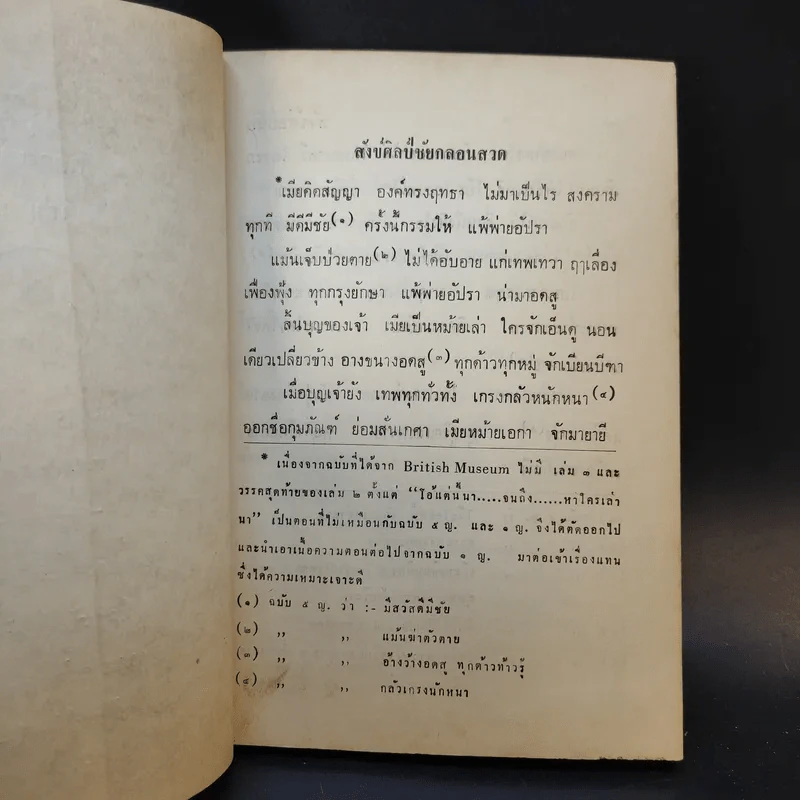 สังข์ศิลป์ชัยกลอนสวด
*เมียคิดสัญญา องค์ทรงฤทธา ไม่มาเป็นไร สงคราม
ทุกที มีดีมีชัย(๑) ครั้งนี้กรรมให้ แพ้พ่ายอัปรา
แม้นเจ็บป่วยตาย(๒) ไม่ได้อับอาย แก่เทพเทวา ฤๅเลื่อง
เฟื่องฟุ้ง ทุกกรุงยักษา แพ้พ่ายอัปรา น่ามาอดสู
สิ้นบุญของเจ้า เมียเป็นหม้ายเล่า ใครจักเอ็นดู นอน
เดียวเปลี่ยวข้าง อางขนางอดสู(๓) ทุกด้าวทุกหมู่ จักเบียนบีฑา
เมื่อบุญเจ้ายัง เทพทุกทั่วทั้ง เกรงกลัวหนักหนา(๔)
ออกชื่อกุมภัณฑ์ ย่อมสั่นเกศา เมียหม้ายเอกา จักมายายี
* เนื่องจากฉบับที่ได้จาก British Museum ไม่มี เล่ม ๑ และ
วรรคสุดท้ายของเล่ม ๒ ตั้งแต่ “โอ้แต่นี้นา.....จนถึง......หาใครเล่า
นา” เป็นตอนที่ไม่เหมือนกับฉบับ ๕ ญ. และ ๑ ญ. จึงได้ตัดออกไป
และนำเอาเนื้อความตอนต่อไปจากฉบับ ๑ ญ. มาต่อเข้าเรื่องแทน
ซึ่งได้ความเหมาะเจาะดี
(๑) ฉบับ ๕ ญ. ว่า :- มีสวัสดิ์มีชัย
(๒) ,, ,, แม้นฆ่าตัวตาย
(๓) ,, ,, อ้างว้างอดสู ทุกด้าวท้าวรู้
(๔) ,, ,, กลัวเกรงนักหนา